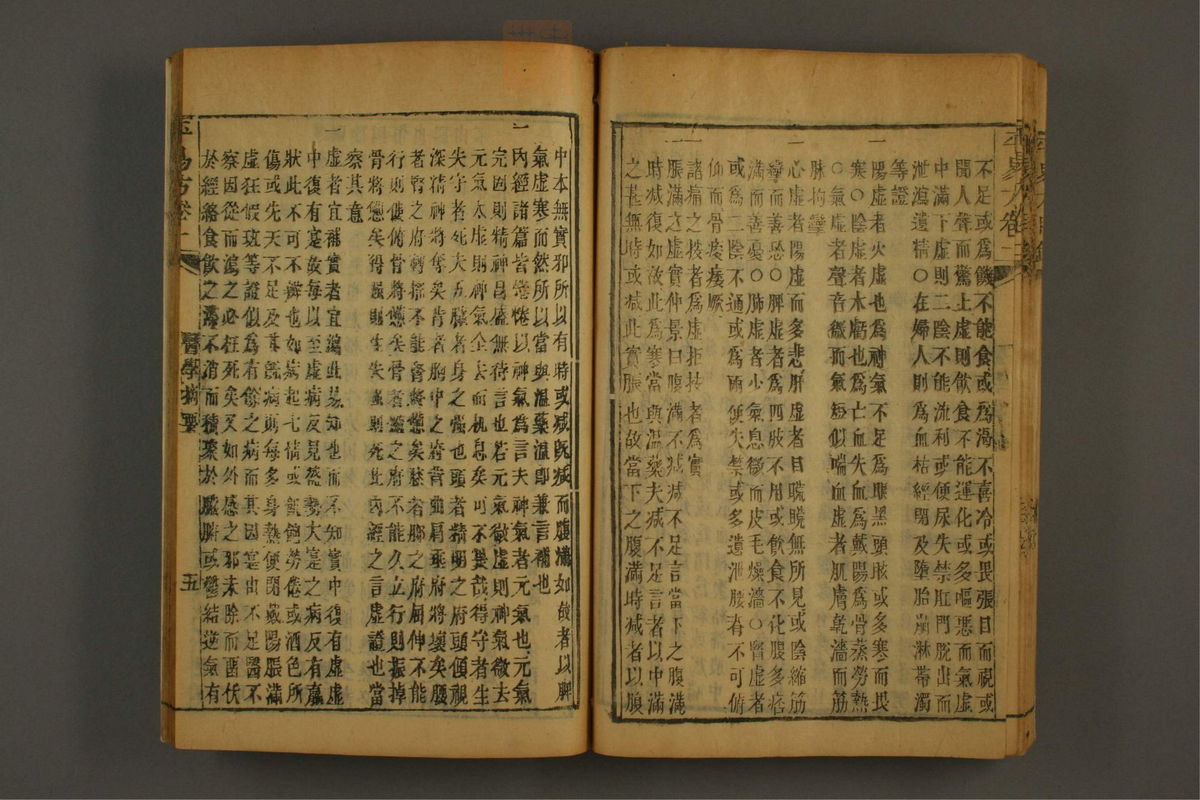 不足或爲饑不能食或爲渴不喜冷或畏張目而視或
聞人聲而驚上虛則飲食不能運化或多嘔惡而氣虛
中滿下虛則二陰不能流利或便尿失禁肛門脫出而
泄瀉遺精〇在婦人則爲血枯經閉及墮胎崩淋帶濁
等證
一陽虛者火虛也爲神氣不足爲眼黑頭眩或多寒而畏
寒〇陰虛者水虧也爲亡血失血爲戴陽爲骨蒸勞熱
一氣虛者聲音微而氣短似喘血虛者肌膚乾濇而筋
脉拘攣
一心虛者陽虛而多悲肝虛者目䀮䀮無所見或陰縮筋
攣而善恐〇脾虛者爲四肢不用或飲食不化腹多痞
滿而善憂〇肺虛者心氣息微而皮毛燥濇〇腎虛者
或爲二陰不通或爲兩便失禁或多遺泄腰脊不可俯
仰而骨痠痿厥
一諸痛之按者爲虛拒按者爲實
一脹滿之虛實仲景曰腹滿不減減不足言當下之腹滿
時減復如故此爲寒當與溫藥夫減不足言者以中滿
之甚無時或減此實脹也故當下之腹滿時減者以腹
中本無實邪所以有時或減既減而腹滿如故者以脾
氣虛寒而然所以當與溫藥溫卽兼言補也
一內經諸篇皆惓惓以神氣爲言夫神氣者元氣也元氣
完固則精神昌盛無待言也若元氣微虛則神氣微去
元氣太虛則神氣全去而机息矣可不畏哉得守者生
失守者死夫五臟者身之强也頭者精明之府頭傾視
深精神將奪矣背者胸中之府背曲肩垂府將壞矣腰
者腎之府轉搖不能腎將憊矣膝者筋之府屈伸不能
行則僂俯骨將憊矣骨者髓之府不能久立行則振掉
骨將憊矣得强則生失强則死此內經之言虛證也當
察其意
一虛者宜補實者宜瀉此易知也而不知實中復有虛虛
中復有實故每以至虛病反見盛勢大實之病反有羸
狀此不可不辨也如病起七情或饑飽勞倦或酒色所
傷或先天不足及其旣病則每多身熱便閉戴陽脹滿
虛狂假斑等證似爲有餘之病而其因實由不足醫不
察因從而瀉之必枉死矣又如外感之邪未除而畱伏
於經絡食飲之滯不消而積聚於臟腑或鬱結逆氣有
卷二
醫學摘要
五